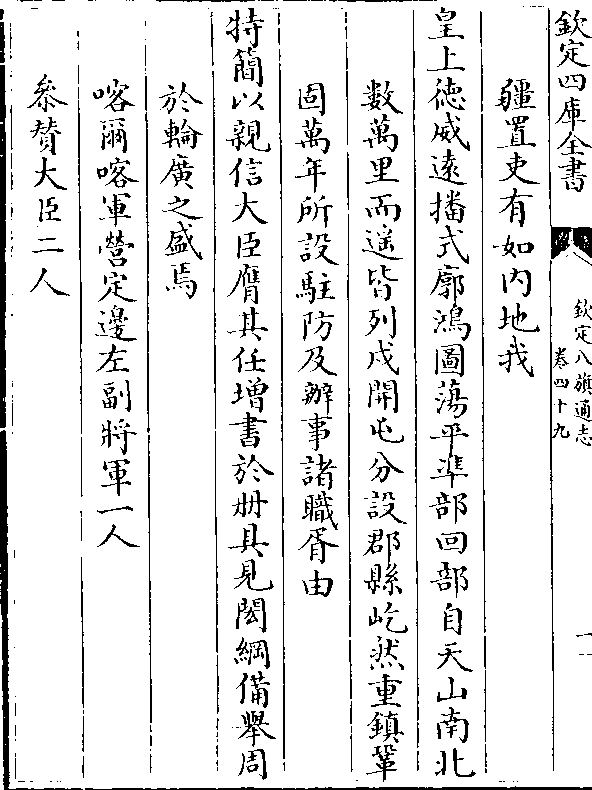 欽定四庫全書
欽定八旗通志
卷四十九
一
疆置吏有如内地我
皇上徳威遠播式廓鴻圖蕩平凖部回部自天山南北
数萬里而遥皆列戍開屯分設郡縣屹然重鎮鞏
固萬年所設駐防及辦事諸職胥由
特簡以親信大臣膺其任增書於册具見閎綱備舉周
於輪廣之盛焉
喀爾喀軍營定邊左副將軍一人
叅賛大臣二人